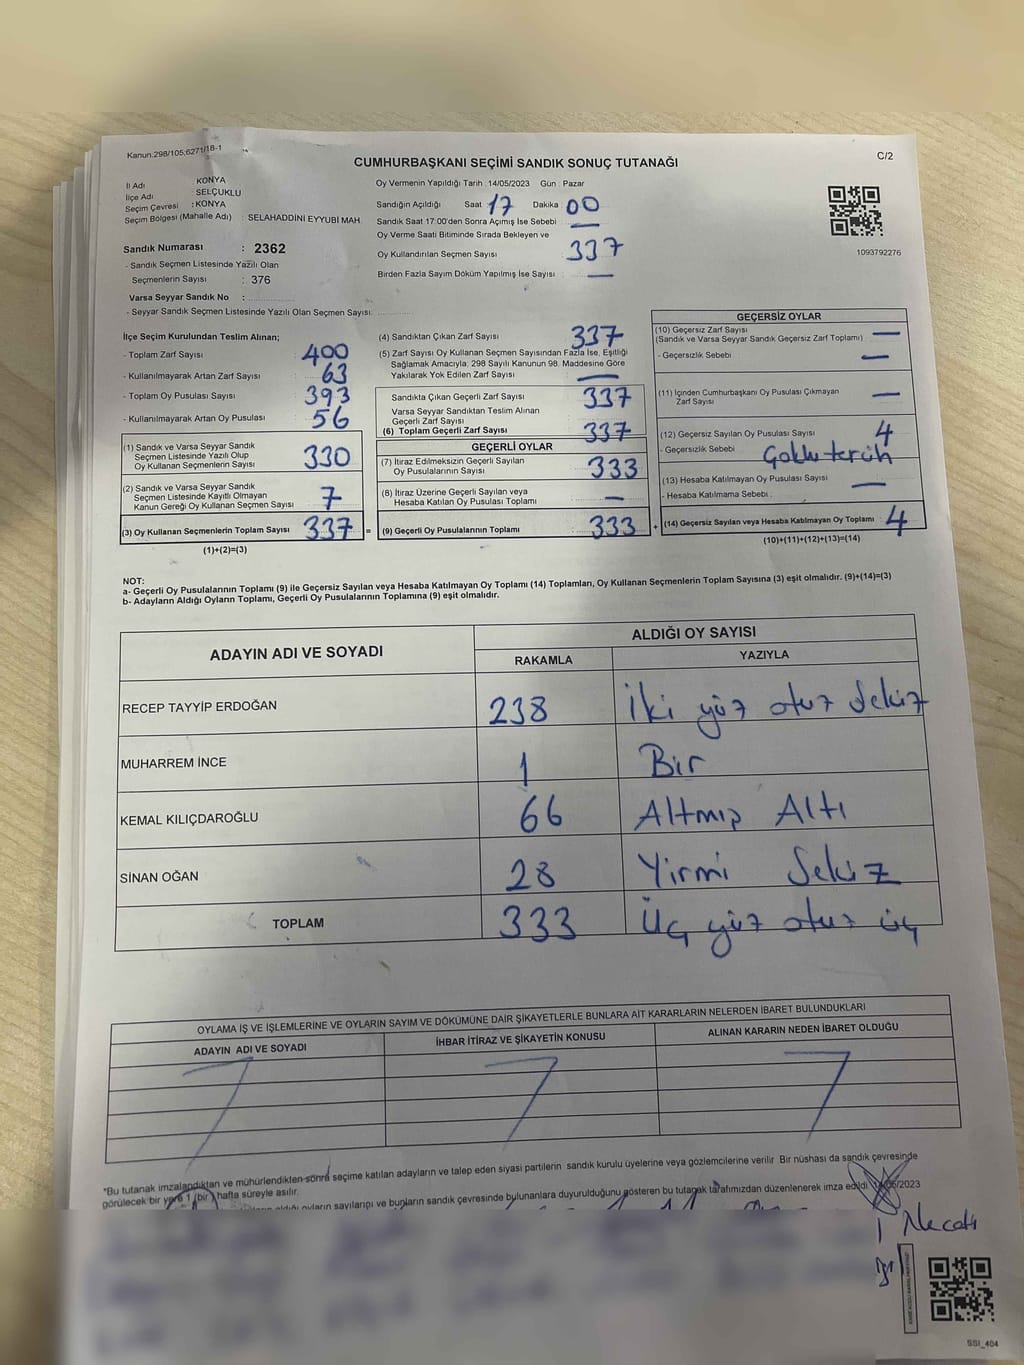 Kanun:298/105;6271/18-1
CUMHURBAŞKANI SEÇİMİ SANDIK SONUÇ TUTANAĞI
C/2
İl Adı : KONYA
İlçe Adı : SELÇUKLU
Seçim Çevresi : KONYA
Seçim Bölgesi (Mahalle Adı) : SELAHADDİNİ EYYUBİ MAH.
Sandık Numarası : 2362
- Sandık Seçmen Listesinde Yazılı Olan
Seçmenlerin Sayısı : 376
Varsa Seyyar Sandık No :
- Seyyar Sandık Seçmen Listesinde Yazılı Olan Seçmen Sayısı:
Oy Vermenin Yapıldığı Tarih :14/05/2023 Gün : Pazar
Sandığın Açıldığı Saat 17 Dakika 00
Sandık Saat 17:00'den Sonra Açılmış İse Sebebi —
Oy Verme Saati Bitiminde Sırada Bekleyen ve
Oy Kullandırılan Seçmen Sayısı 337
Birden Fazla Sayım Döküm Yapılmış İse Sayısı : —
1093792276
İlçe Seçim Kurulundan Teslim Alınan;
- Toplam Zarf Sayısı 400
- Kullanılmayarak Artan Zarf Sayısı 63
- Toplam Oy Pusulası Sayısı 393
- Kullanılmayarak Artan Oy Pusulası 56
(1) Sandık ve Varsa Seyyar Sandık
Seçmen Listesinde Yazılı Olup
Oy Kullanan Seçmenlerin Sayısı 330
(2) Sandık ve Varsa Seyyar Sandık
Seçmen Listesinde Kayıtlı Olmayan
Kanun Gereği Oy Kullanan Seçmen Sayısı 7
(3) Oy Kullanan Seçmenlerin Toplam Sayısı 337 =
(1)+(2)=(3)
(4) Sandıktan Çıkan Zarf Sayısı 337
(5) Zarf Sayısı Oy Kullanan Seçmen Sayısından Fazla İse, Eşitliği
Sağlamak Amacıyla, 298 Sayılı Kanunun 98. Maddesine Göre
Yakılarak Yok Edilen Zarf Sayısı : —
Sandıkta Çıkan Geçerli Zarf Sayısı 337
Varsa Seyyar Sandıktan Teslim Alınan
Geçerli Zarf Sayısı
(6) Toplam Geçerli Zarf Sayısı 337
GEÇERLİ OYLAR
(7) İtiraz Edilmeksizin Geçerli Sayılan
Oy Pusulalarının Sayısı 333
(8) İtiraz Üzerine Geçerli Sayılan veya
Hesaba Katılan Oy Pusulası Toplamı —
(9) Geçerli Oy Pusulalarının Toplamı 333 +
GEÇERSİZ OYLAR
(10) Geçersiz Zarf Sayısı
(Sandık ve Varsa Seyyar Sandık Geçersiz Zarf Toplamı) —
- Geçersizlik Sebebi —
(11) İçinden Cumhurbaşkanı Oy Pusulası Çıkmayan
Zarf Sayısı —
(12) Geçersiz Sayılan Oy Pusulası Sayısı 4
- Geçersizlik Sebebi : Çoklu tercih
(13) Hesaba Katılmayan Oy Pusulası Sayısı —
- Hesaba Katılmama Sebebi :
(14) Geçersiz Sayılan veya Hesaba Katılmayan Oy Toplamı 4
(10)+(11)+(12)+(13)=(14)
NOT:
a- Geçerli Oy Pusulalarının Toplamı (9) ile Geçersiz Sayılan veya Hesaba Katılmayan Oy Toplamı (14) Toplamları, Oy Kullanan Seçmenlerin Toplam Sayısına (3) eşit olmalıdır. (9)+(14)=(3)
b- Adayların Aldığı Oyların Toplamı, Geçerli Oy Pusulalarının Toplamına (9) eşit olmalıdır.
ADAYIN ADI VE SOYADI
ALDIĞI OY SAYISI
RAKAMLA YAZIYLA
RECEP TAYYİP ERDOĞAN 238 İki yüz otuz Sekiz
MUHARREM İNCE 1 Bir
KEMAL KILIÇDAROĞLU 66 Altmış Altı
SİNAN OĞAN 28 Yirmi Sekiz
TOPLAM 333 Üç yüz otuz üç
OYLAMA İŞ VE İŞLEMLERİNE VE OYLARIN SAYIM VE DÖKÜMÜNE DAİR ŞİKAYETLERLE BUNLARA AİT KARARLARIN NELERDEN İBARET BULUNDUKLARI
ADAYIN ADI VE SOYADI İHBAR İTİRAZ VE ŞİKAYETİN KONUSU ALINAN KARARIN NEDEN İBARET OLDUĞU
*Bu tutanak imzalandıktan ve mühürlendikten sonra seçime katılan adayların ve talep eden siyasi partilerin sandık kurulu üyelerine veya gözlemcilerine verilir. Bir nüshası da sandık çevresinde
görülecek bir yere 1 (bir) hafta süreyle asılır.
aldığı oyların sayılarını ve bunların sandık çevresinde bulunanlara duyurulduğunu gösteren bu tutanak tarafımızdan düzenlenerek imza edildi. 14/05/2023
Necati
SSI_404